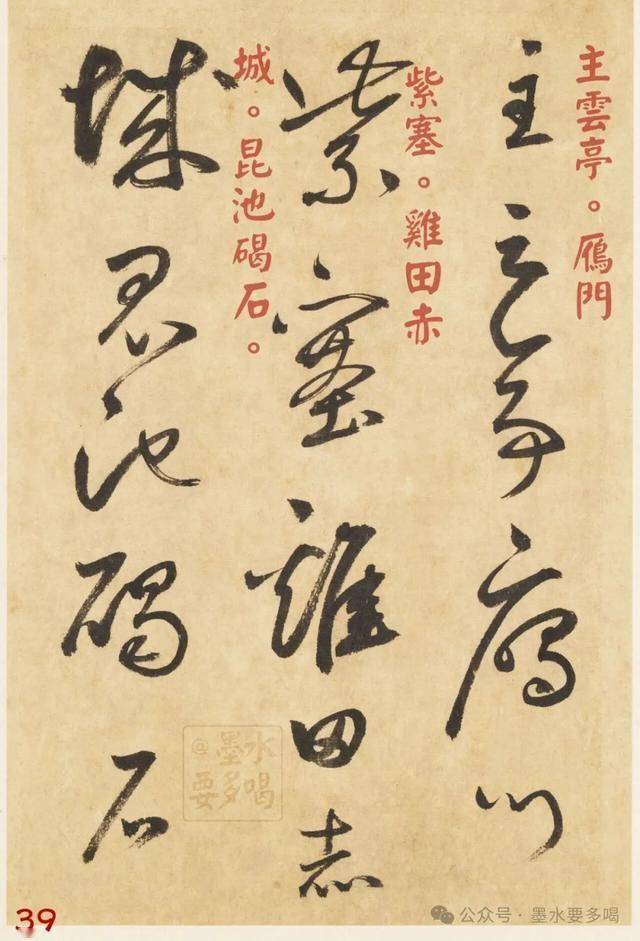 主雲亭。鴈門
主雲亭鴈門
紫塞。雞田赤
紫塞雞田赤
城。昆池碣石。
城昆池碣石
@墨水
要多喝
39
公众号·墨水要多喝